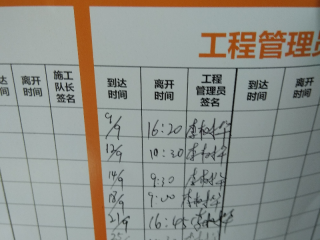 工程管理员
达时间
离开时间
施工队长签名
到达时间
离开时间
工程管理员签名
到达时间
离开时间
9/9 16:20
12/9 10:30
14/9 9:30
18/9 9:00
21/9 16:45